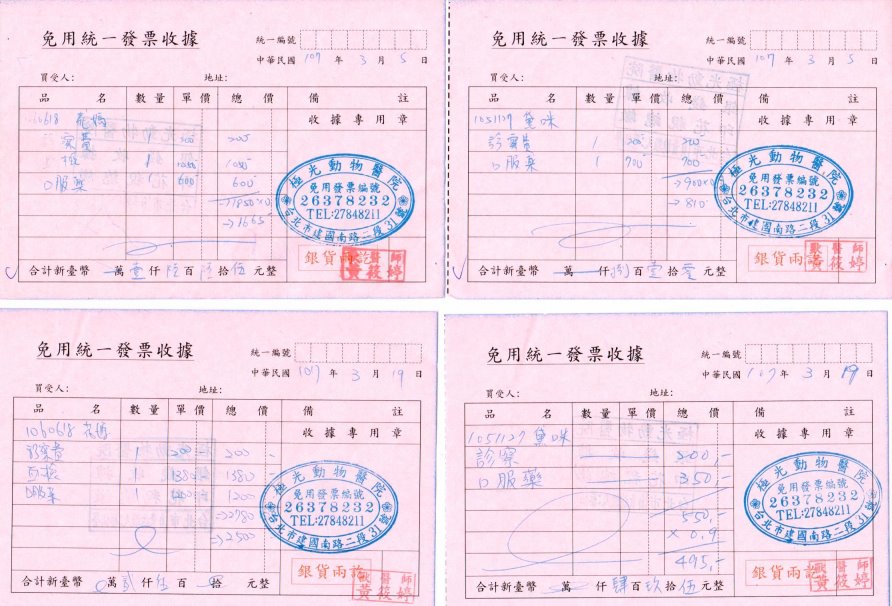 免用統一發票收據
統一編號
中華民國 107 年 3 月 5 日
買受人: 地址:
品 名 數量 單價 總 價 備 註
收據專用章
診察費 1 200 200
口服藥 1 600 600
→1665
極光動物醫院
免用發票編號
26378232
TEL:27848211
台北市建國南路二段31號
銀貨兩訖
獸醫師
黃筱婷
合計新臺幣 萬 壹 仟 陸 百 陸 拾 伍 元整
免用統一發票收據
統一編號
中華民國 107 年 3 月 5 日
買受人: 地址:
品 名 數量 單價 總 價 備 註
收據專用章
1051127 黛咪
診察費 1 200 200
口服藥 1 700 700
→810
極光動物醫院
免用發票編號
26378232
TEL:27848211
台北市建國南路二段31號
銀貨兩訖
獸醫師
黃筱婷
合計新臺幣 萬 仟 捌 百 壹 拾 零 元整
免用統一發票收據
統一編號
中華民國 107 年 3 月 19 日
買受人: 地址:
品 名 數量 單價 總 價 備 註
收據專用章
1060618 花媽
診察費 1 200 200
1 1380 1380
口服藥 1 1200 1200
→2780
→2500
極光動物醫院
免用發票編號
26378232
TEL:27848211
台北市建國南路二段31號
銀貨兩訖
獸醫師
黃筱婷
合計新臺幣 萬 貳 仟 伍 百 拾 元整
免用統一發票收據
統一編號
中華民國 107 年 3 月 19 日
買受人: 地址:
品 名 數量 單價 總 價 備 註
收據專用章
1051127 黛咪
診察 200,-
口服藥 350,-
550,-
×0.9
495,-
極光動物醫院
免用發票編號
26378232
TEL:27848211
台北市建國南路二段31號
銀貨兩訖
獸醫師
黃筱婷
合計新臺幣 萬 仟 肆 百 玖 拾 伍 元整